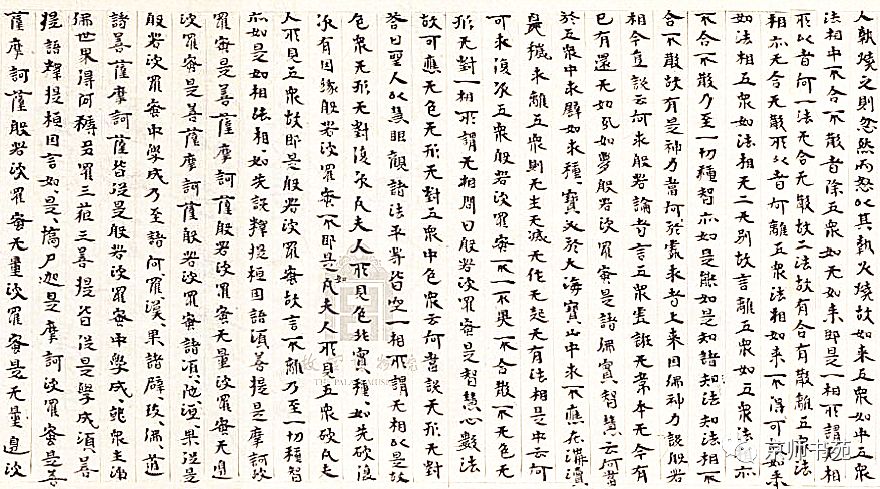 人執燒之則忽然而怒以其執火燒故如來五眾如中五眾
法相中不合不散者除五眾如无如來即是一相所謂无相
所以者何一法无合无散故二法故有合有散離五眾法
相亦无合无散所以者何離五眾法相如來不得可如來
如法相五眾如法相无二无別故言離五眾如五眾法亦
不合不散乃至一切種智亦如是能如是知諸知法知法相不
合不散故有是神力當何於處求者上來因佛神力說般若
相今直說云何求般若論者言五眾虛誑无常本无今有
已有還无如如夢般若波羅蜜是諸佛實智慧云何當
於五眾中求譬如求種〻寶必於大海寶山中求不應在溝瀆
臭穢求離五眾則无生无滅无作无起无有法相是中云何
可求復次五眾般若波羅蜜不一不異不合不散不无色无
形无對一相所謂无相問曰般若波羅蜜是智慧心數法
故可應无色无形无對五眾中色眾云何當說无形无對
答曰聖人以慧眼觀諸法平等皆空一相所謂无相以是故
色眾无形无對復次凡夫人所見色非實種〻如先破復
次有因緣般若波羅蜜不即是凡夫人所見五眾破凡夫
人所見五眾故即是般若波羅蜜故言不離乃至一切種智
亦如是如相法相如先說釋提桓因語須菩提是摩訶波
羅蜜是菩薩摩訶薩般若波羅蜜无量波羅蜜无邊
波羅蜜是菩薩摩訶薩般若波羅蜜諸須〻陀〻洹〻果從是
般若波羅蜜中學成乃至諸阿〻羅〻漢〻果諸辟〻支〻佛〻道
諸菩薩摩訶薩皆從是般若波羅蜜中學成就眾生淨
佛世界得阿耨多羅三藐三菩提皆從是學成須菩
提語釋提桓因言如〻是〻憍尸迦是摩訶波羅蜜是菩
薩摩訶薩般若波羅蜜无量波羅蜜是无量邊波
京师书苑